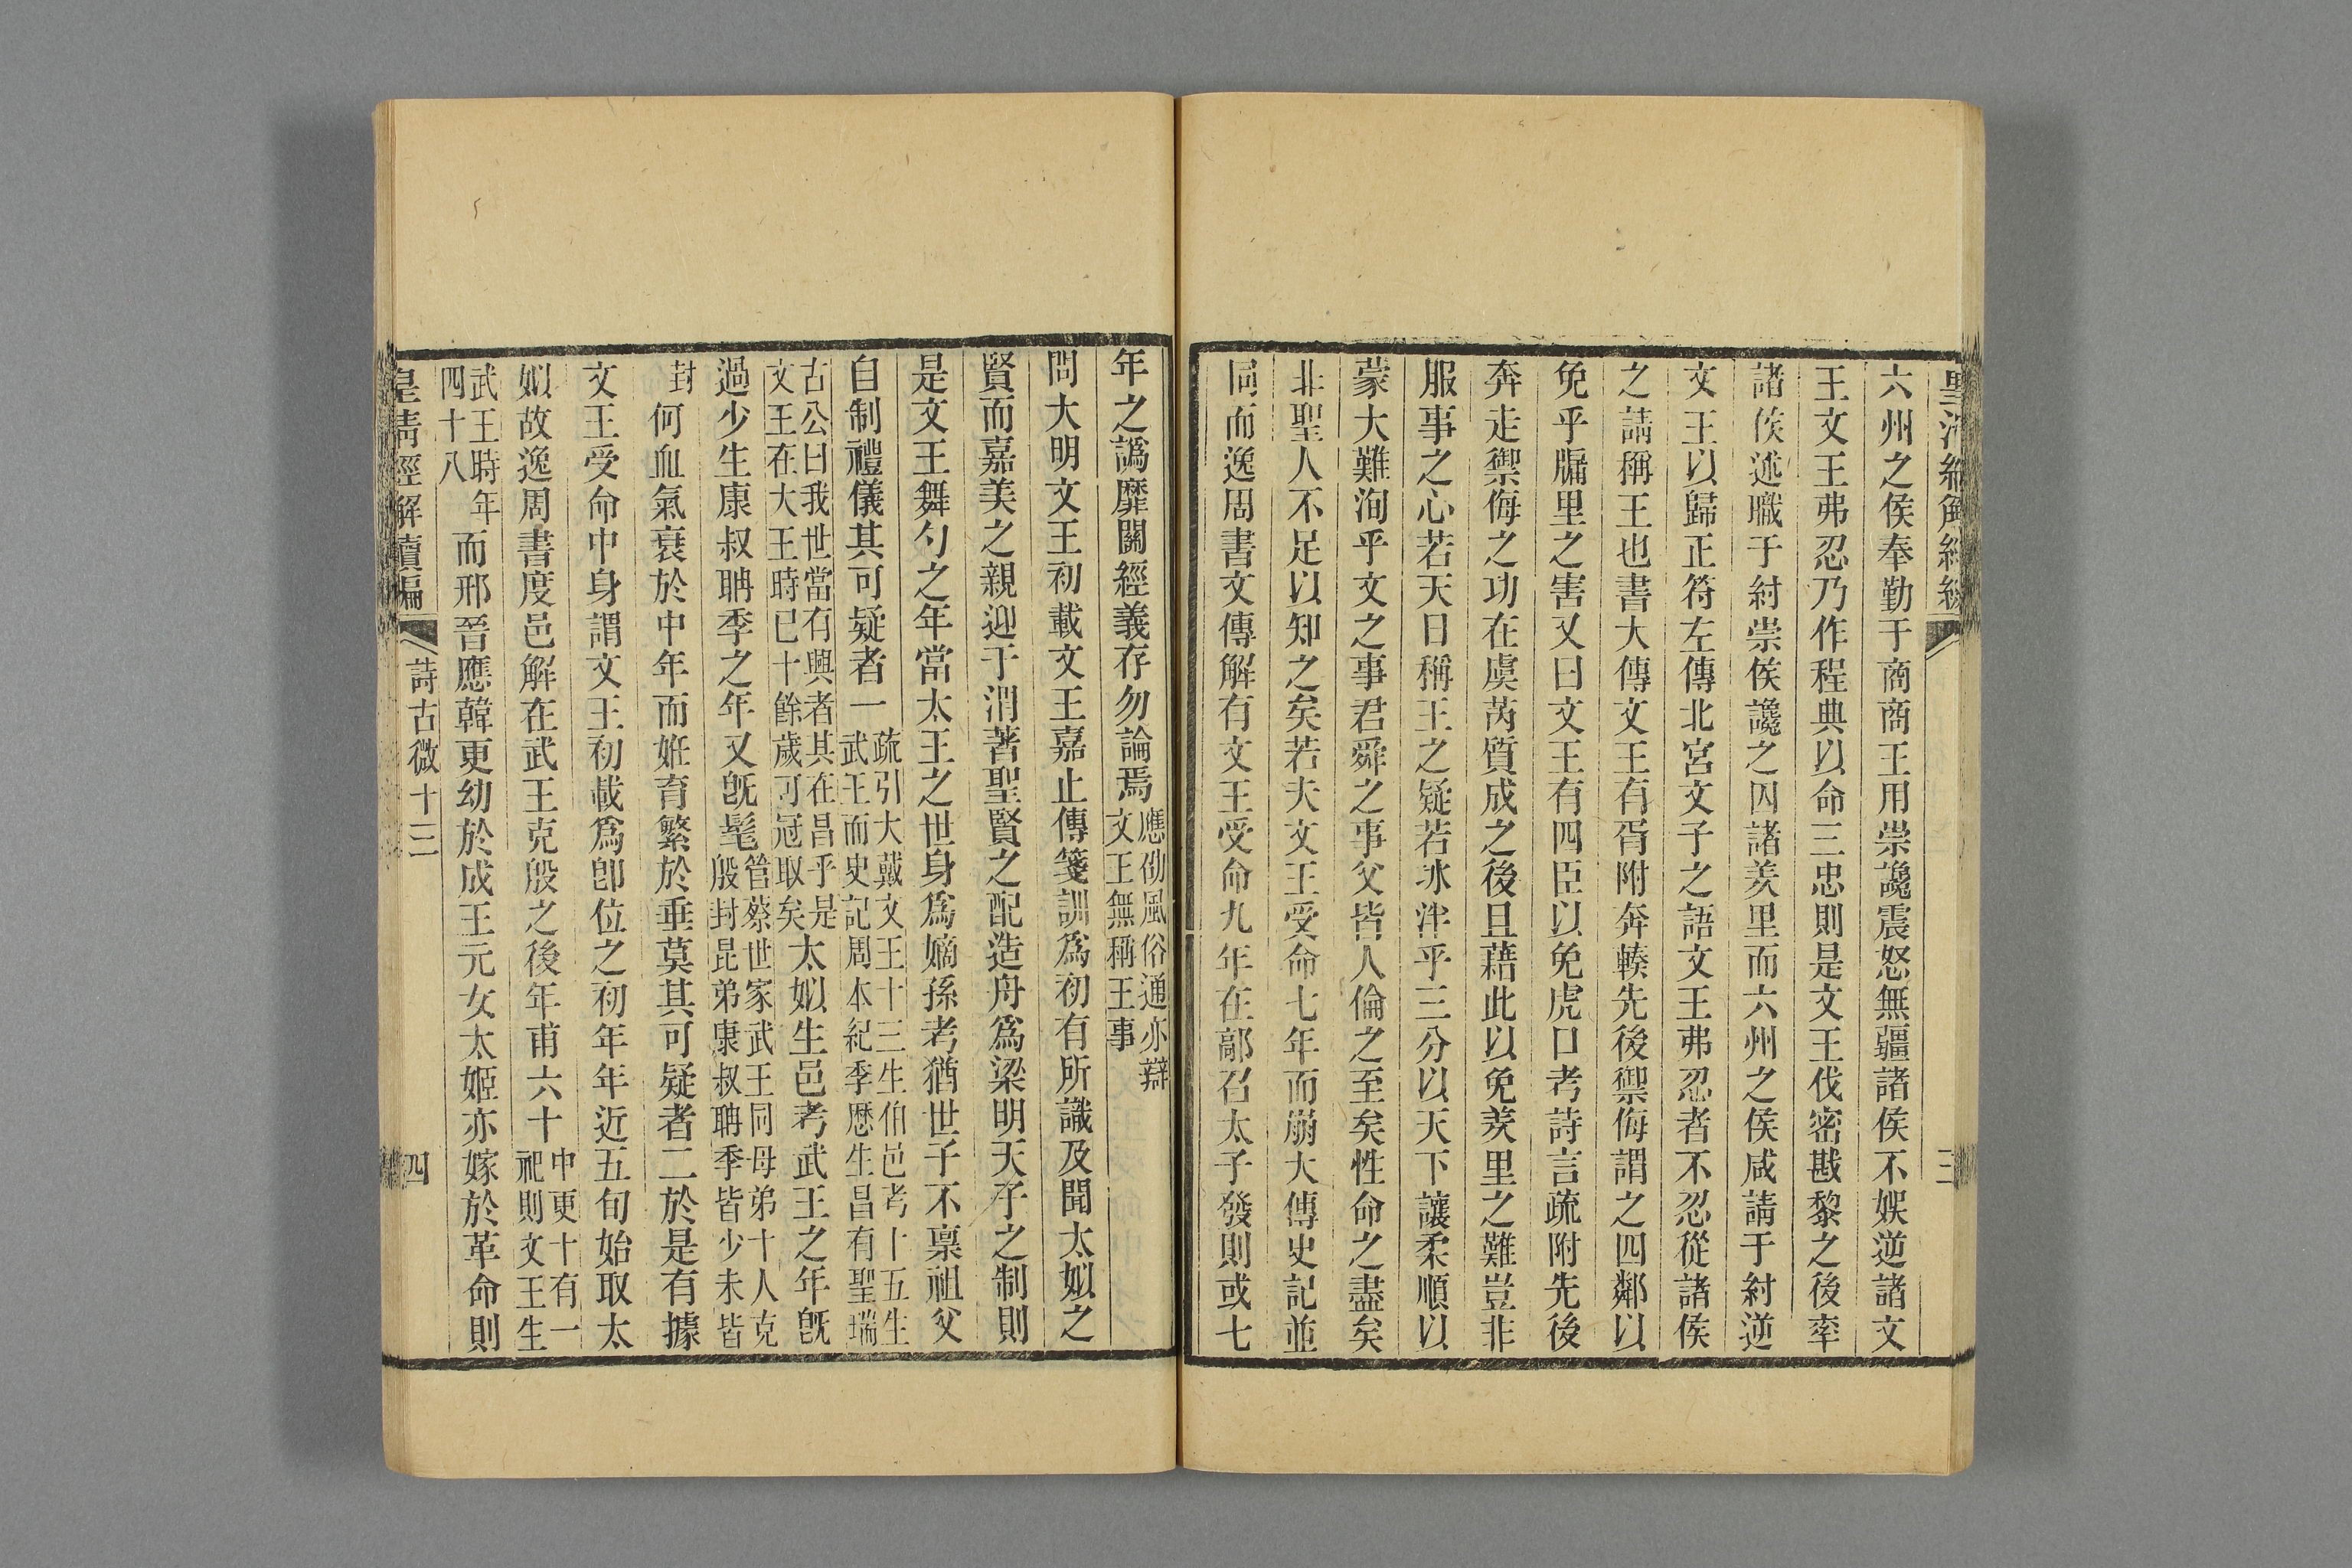 三
六州之侯奉勤于商商王用崇讒震怒無疆諸侯不娛逆諸文
王文王弗忍乃作程典以命三忠則是文王伐密戡黎之後率
諸侯述職于紂崇侯讒之囚諸羑里而六州之侯咸請于紂逆
文王以歸正符左傳北宮文子之語文王弗忍者不忍從諸侯
之請稱王也書大傳文王有胥附奔輳先後禦侮謂之四鄰以
免乎牖里之害又曰文王有四臣以免虎口考詩言疏附先後
奔走禦侮之功在虞芮質成之後且藉此以免羑里之難豈非
服事之心若天日稱王之疑若冰泮乎三分以天下讓柔順以
蒙大難洵乎文之事君舜之事父皆人倫之至矣性命之盡矣
非聖人不足以知之矣若夫文王受命七年而崩大傳史記並
同而逸周書文傳解有文王受命九年在鄗召太子發則或七
年之譌靡關經義存勿論焉應劭風俗通亦辯
文王無稱王事
問大明文王初載文王嘉止傳箋訓爲初有所識及聞太姒之
賢而嘉美之親迎于渭著聖賢之配造舟爲梁明天子之制則
是文王舞勺之年當太王之世身爲嫡孫考猶世子不稟祖父
自制禮儀其可疑者一疏引大戴文王十三生伯邑考十五生
武王而史記周本紀季歷生昌有聖瑞
古公曰我世當有興者其在昌乎是
文王在大王時已十餘歲可冠取矣太姒生邑考武王之年旣
過少生康叔聃季之年又旣耄管蔡世家武王同母弟十人克
殷封昆弟康叔聃季皆少未皆
封何血氣衰於中年而姙育繁於垂莫其可疑者二於是有據
文王受命中身謂文王初載爲卽位之初年年近五旬始取太
姒故逸周書度邑解在武王克殷之後年甫六十中更十有一
祀則文王生
武王時年
四十八而邢晉應韓更幼於成王元女太姬亦嫁於革命則
皇清經解續編 詩古微十三 四